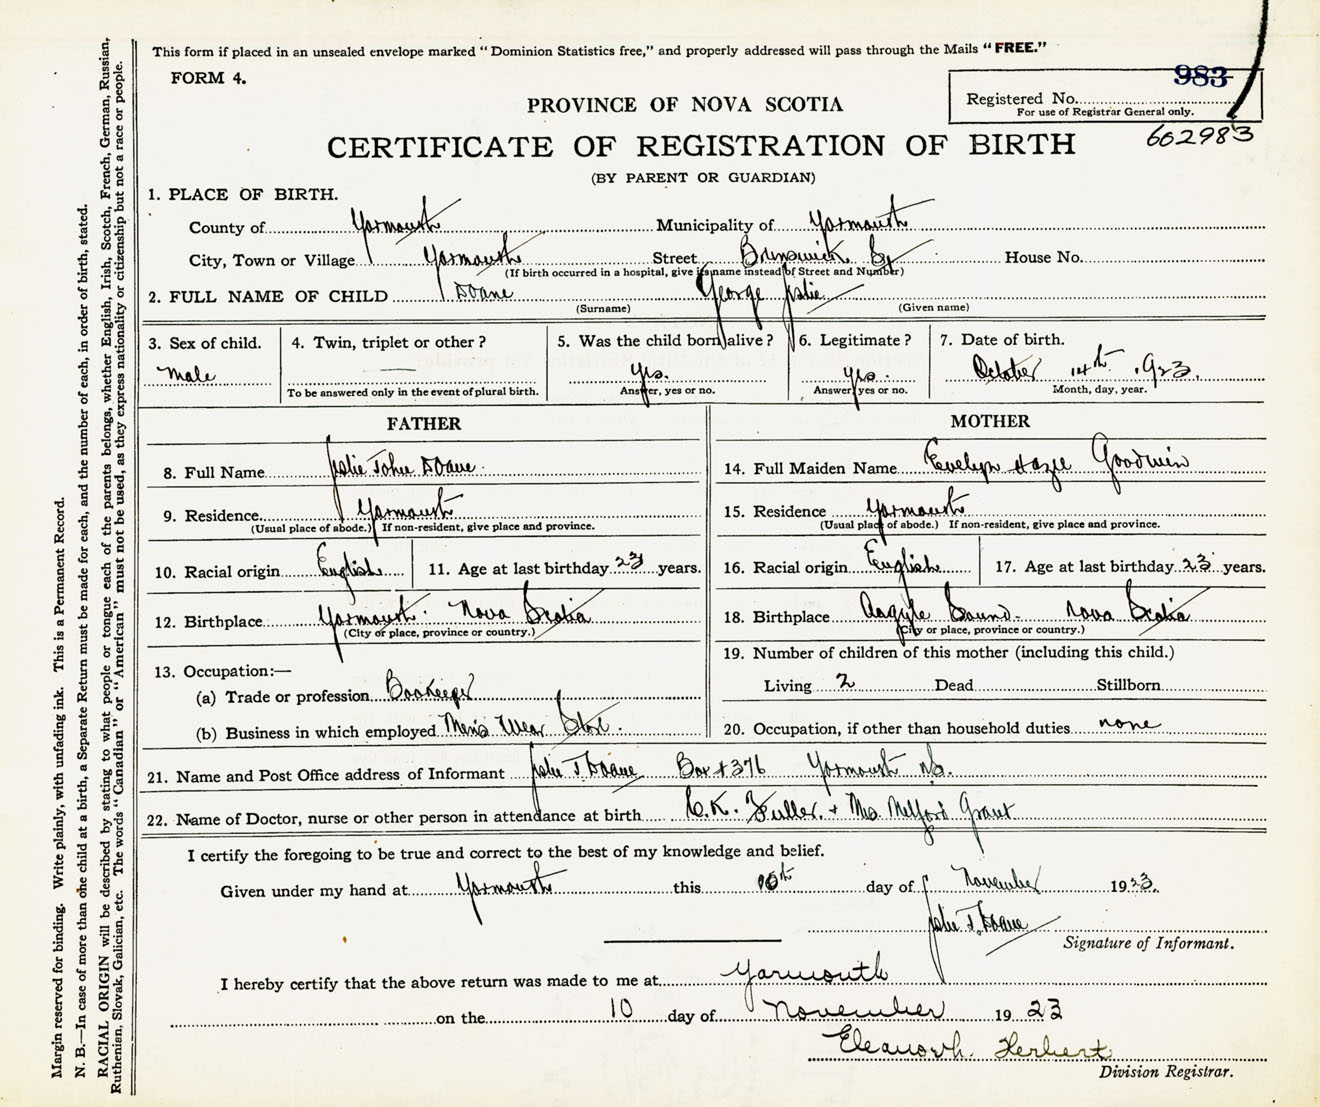 This form if placed in an unsealed envelope marked "Dominion Statistics free," and properly addressed will pass through the Mails "FREE."
FORM 4.
983
Registered No.
For use of Registrar General only.
602983
PROVINCE OF NOVA SCOTIA
CERTIFICATE OF REGISTRATION OF BIRTH
(BY PARENT OR GUARDIAN)
1. PLACE OF BIRTH.
County of Yarmouth Municipality of Yarmouth
City, Town or Village Yarmouth Street Brunswick St House No.
(If birth occurred in a hospital, give its name instead of Street and Number)
2. FULL NAME OF CHILD Doane George Leslie
(Surname) (Given name)
3. Sex of child. 4. Twin, triplet or other? 5. Was the child born alive? 6. Legitimate? 7. Date of birth.
Male Yes. Yes. October 14th 1923.
To be answered only in the event of plural birth. Answer, yes or no. Answer yes or no. Month, day, year.
FATHER
8. Full Name Leslie John Doane
9. Residence Yarmouth
(Usual place of abode.) If non-resident, give place and province.
10. Racial origin English 11. Age at last birthday 23 years.
12. Birthplace Yarmouth. Nova Scotia
(City or place, province or country.)
13. Occupation:—
(a) Trade or profession Bookeeper
(b) Business in which employed Men's Wear Store.
MOTHER
14. Full Maiden Name Evelyn Hazel Goodwin
15. Residence Yarmouth
(Usual place of abode.) If non-resident, give place and province.
16. Racial origin English 17. Age at last birthday 23 years.
18. Birthplace Argyle Sound. Nova Scotia
(City or place, province or country.)
19. Number of children of this mother (including this child.)
Living 2 Dead Stillborn
20. Occupation, if other than household duties none
21. Name and Post Office address of Informant Leslie J. Doane Box 376 Yarmouth N.S.
22. Name of Doctor, nurse or other person in attendance at birth C.K. Fuller. + Mrs. Melford Grant
I certify the foregoing to be true and correct to the best of my knowledge and belief.
Given under my hand at Yarmouth this 10th day of November 1923.
Leslie J. Doane
Signature of Informant.
I hereby certify that the above return was made to me at Yarmouth
on the 10 day of November 1923
Eleanor h. Herbert
Division Registrar.
Margin reserved for binding. Write plainly, with unfading ink. This is a Permanent Record.
N. B.—In case of more than one child at a birth, a Separate Return must be made for each, and the number of each, in order of birth, stated.
RACIAL ORIGIN will be described by stating to what people or tongue each of the parents belongs, whether English, Irish, Scotch, French, German, Russian,
Ruthenian, Slovak, Galician, etc. The words "Canadian" or "American" must not be used, as they express nationality or citizenship but not a race or people.